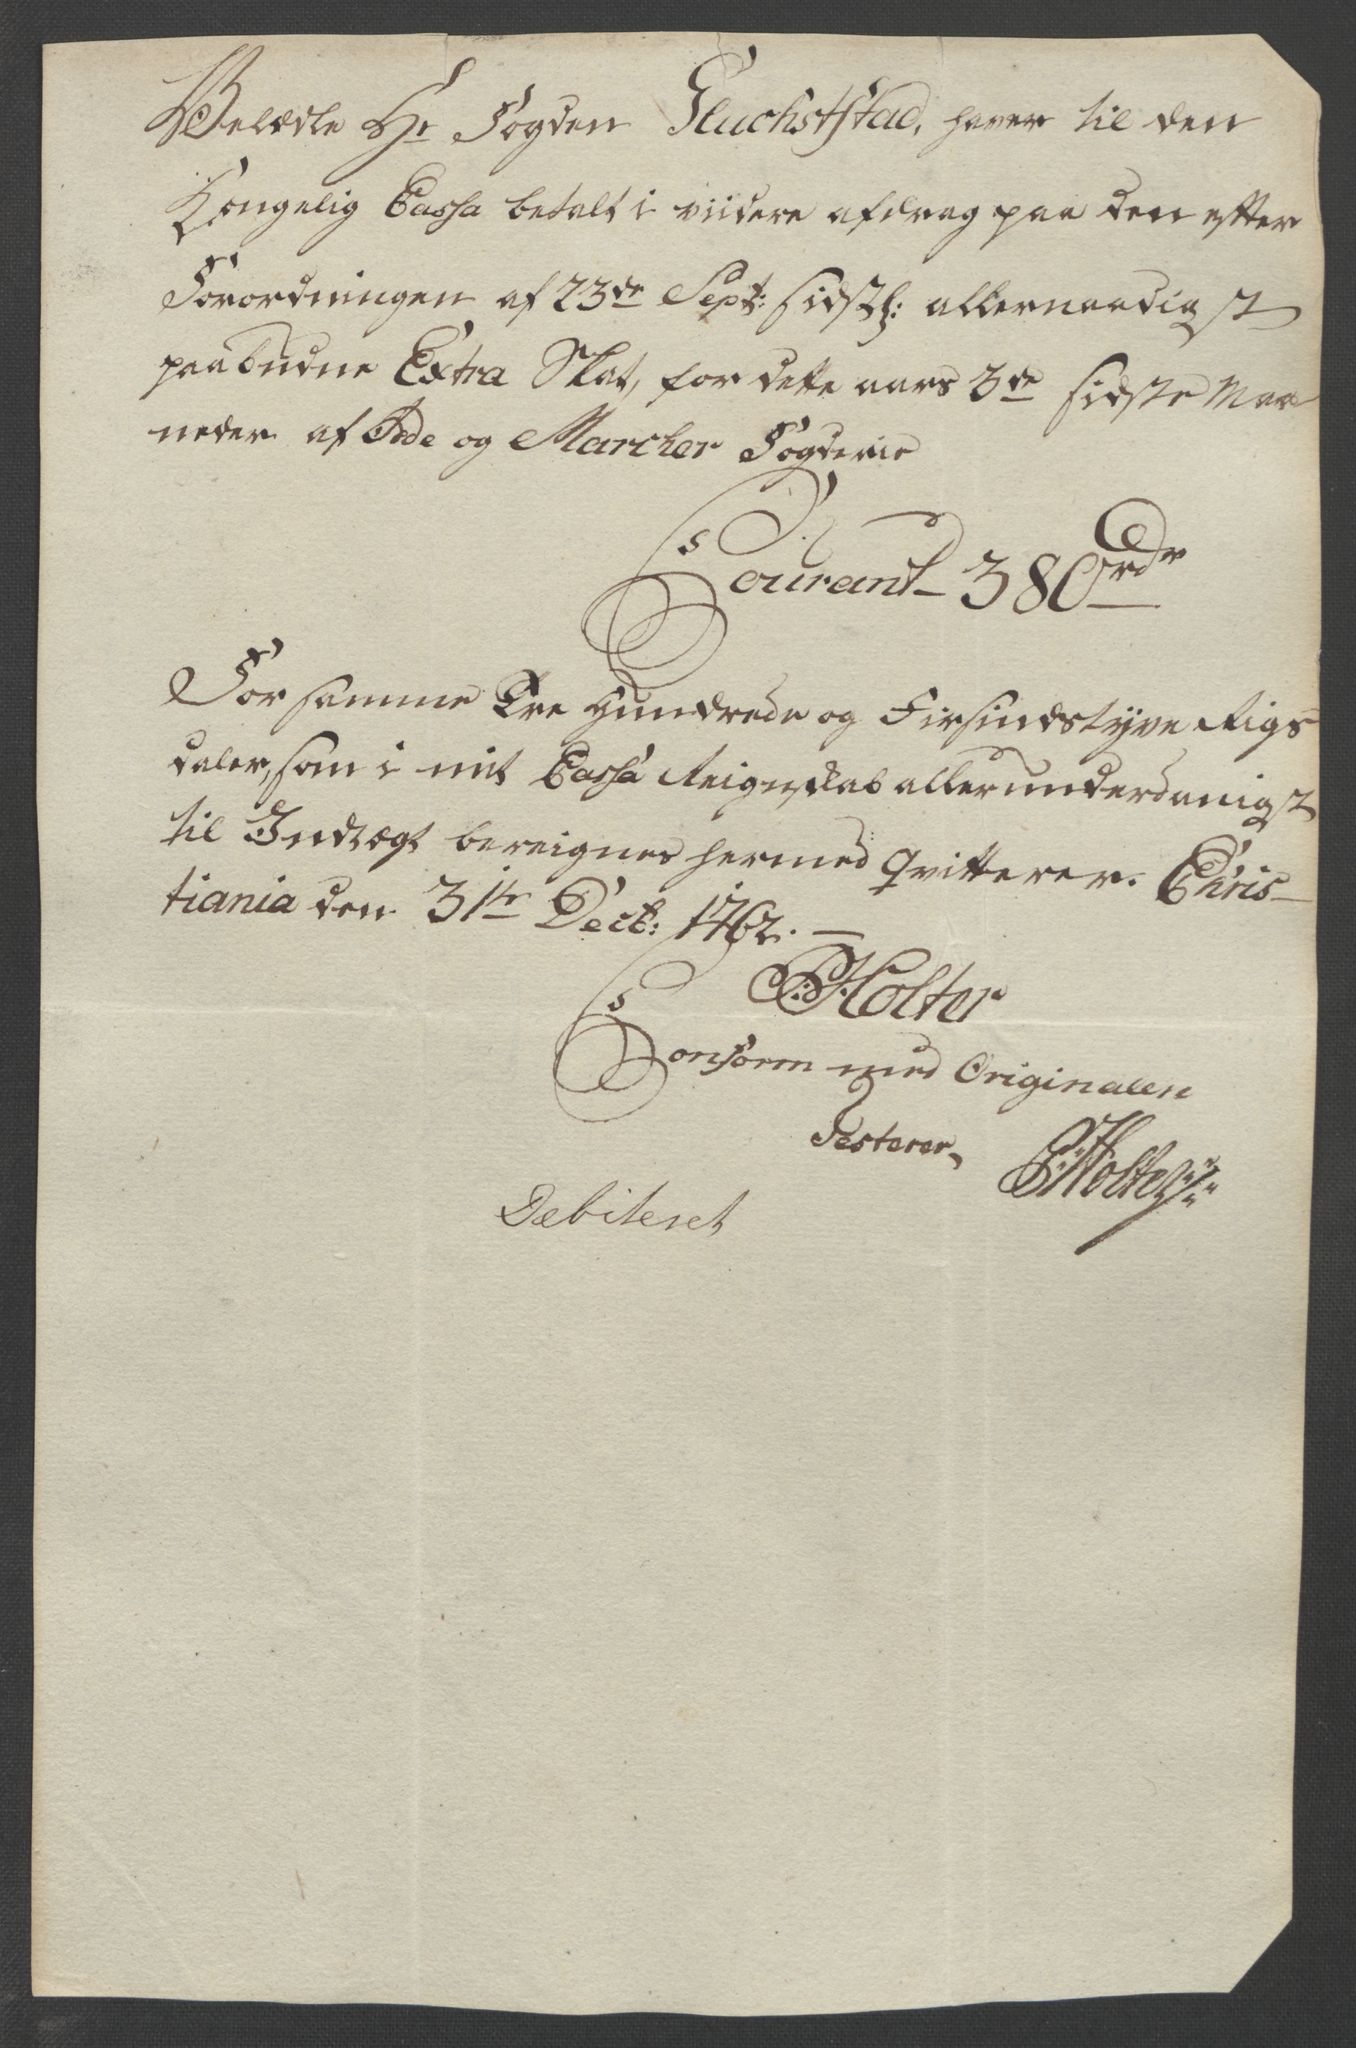 Velædle Hr Fogden Gluchstftad, haver til den
Kongelig Cassa betalt i viidere afdrag paa den efter
Forordningen af 23de Sept: sidstl: allernaadigst
paabudne Extra Skat, for dette aars 3de sidste Maa
neder af Ide og Marcher Fogderie
Courant 380 rdr
For samme Tre Hundrede og Firsindstyve Rigs
daler, som i mit Cassa Reigenskab allerunderdanigst
til Indtægt bereignes hermed qvitterer. Chris-
tiania den 31te Decb: 1762. —
Holter
Conform med Originalen
Testerer
Holter
Debiteret